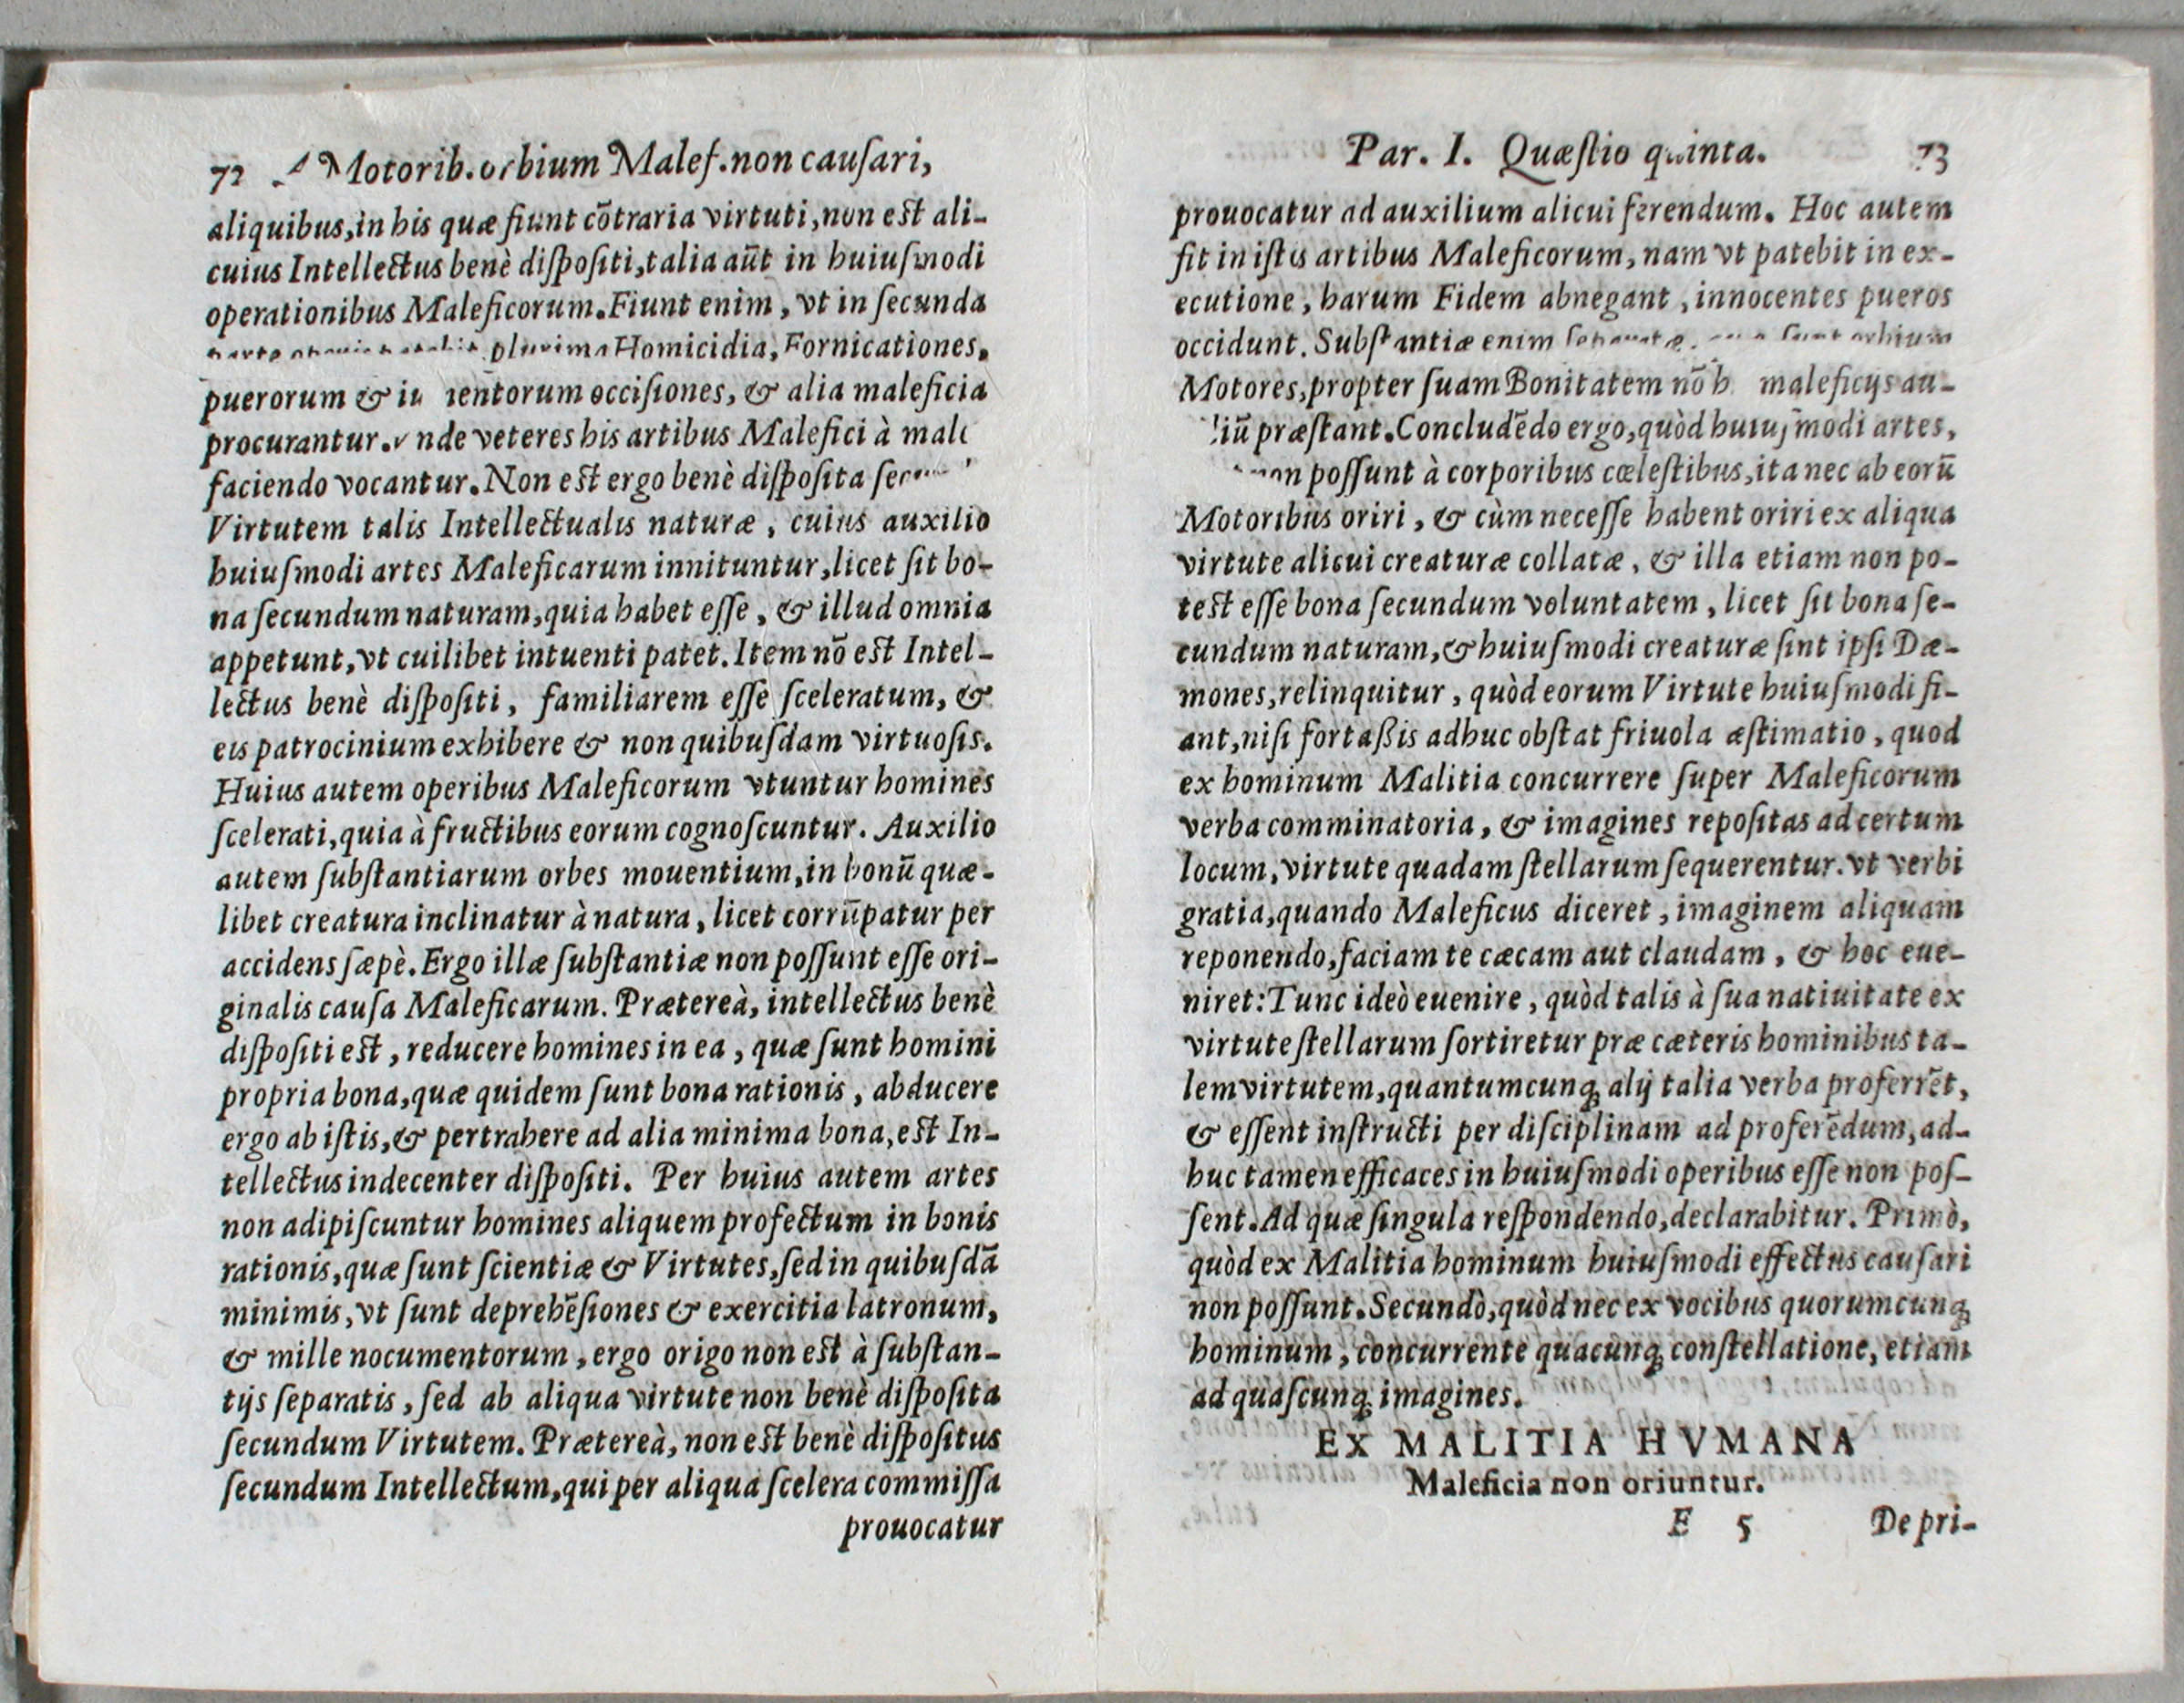 72 A Motorib. orbium Malef. non cauſari,
aliquibus, in his quæ fiunt cõtraria virtuti, non eſt ali-
cuius Intellectus benè diſpoſiti, talia aũt in huiuſmodi
operationibus Maleficorum. Fiunt enim, vt in ſecunda
plurima Homicidia, Fornicationes,
puerorum & occiſiones, & alia maleficia
procurantur. vnde veteres his artibus Malefici à male
faciendo vocantur. Non eſt ergo benè diſpoſita
Virtutem talis Intellectualis naturæ, cuius auxilio
huiuſmodi artes Maleficarum innituntur, licet ſit bo-
na ſecundum naturam, quia habet eſſe, & illud omnia
appetunt, vt cuilibet intuenti patet. Item nõ eſt Intel-
lectus benè diſpoſiti, familiarem eſſe ſceleratum, &
eis patrocinium exhibere & non quibuſdam virtuoſis.
Huius autem operibus Maleficorum vtuntur homines
ſcelerati, quia à fructibus eorum cognoſcuntur. Auxilio
autem ſubſtantiarum orbes mouentium, in bonũ quæ-
libet creatura inclinatur à natura, licet corrũpatur per
accidens ſæpè. Ergo illæ ſubſtantiæ non poſſunt eſſe ori-
ginalis cauſa Maleficarum. Prætereà, intellectus benè
diſpoſiti eſt, reducere homines in ea, quæ ſunt homini
propria bona, quæ quidem ſunt bona rationis, abducere
ergo ab iſtis, & pertrahere ad alia minima bona, eſt In-
tellectus indecenter diſpoſiti. Per huius autem artes
non adipiſcuntur homines aliquem profectum in bonis
rationis, quæ ſunt ſcientiæ & Virtutes, ſed in quibuſdã
minimis, vt ſunt deprehẽſiones & exercitia latronum,
& mille nocumentorum, ergo origo non eſt à ſubſtan-
tijs ſeparatis, ſed ab aliqua virtute non benè diſpoſita
ſecundum Virtutem. Prætereà, non eſt benè diſpoſitus
ſecundum Intellectum, qui per aliqua ſcelera commiſſa
prouocatur
Par. I. Quæſtio quinta. 73
prouocatur ad auxilium alicui ferendum. Hoc autem
fit in iſtis artibus Maleficorum, nam vt patebit in ex-
ecutione, harum Fidem abnegant, innocentes pueros
occidunt. Subſtantiæ enim orbium
Motores, propter ſuam Bonitatem nõ maleficijs au-
præſtant. Concludẽdo ergo, quòd huiuſmodi artes,
non poſſunt à corporibus cœleſtibus, ita nec ab eorũ
Motoribus oriri, & cùm neceſſe habent oriri ex aliqua
virtute alicui creaturæ collatæ, & illa etiam non po-
teſt eſſe bona ſecundum voluntatem, licet ſit bona ſe-
cundum naturam, & huiuſmodi creaturæ ſint ipſi Dæ-
mones, relinquitur, quòd eorum Virtute huiuſmodi fi-
ant, niſi fortaßis adhuc obſtat friuola æſtimatio, quod
ex hominum Malitia concurrere ſuper Maleficorum
verba comminatoria, & imagines repoſitas ad certum
locum, virtute quadam ſtellarum ſequerentur. vt verbi
gratia, quando Maleficus diceret, imaginem aliquam
reponendo, faciam te cæcam aut claudam, & hoc eue-
niret: Tunc ideò euenire, quòd talis à ſua natiuitate ex
virtute ſtellarum ſortiretur præ cæteris hominibus ta-
lem virtutem, quantumcunq; alij talia verba proferrẽt,
& eſſent inſtructi per diſciplinam ad proferẽdum, ad-
huc tamen efficaces in huiuſmodi operibus eſſe non poſ-
ſent. Ad quæ ſingula reſpondendo, declarabitur. Primò,
quòd ex Malitia hominum huiuſmodi effectus cauſari
non poſſunt. Secundò, quòd nec ex vocibus quorumcunq;
hominum, concurrente quacunq; conſtellatione, etiam
ad quaſcunq; imagines.
EX MALITIA HVMANA
Maleficia non oriuntur.
E 5 De pri-